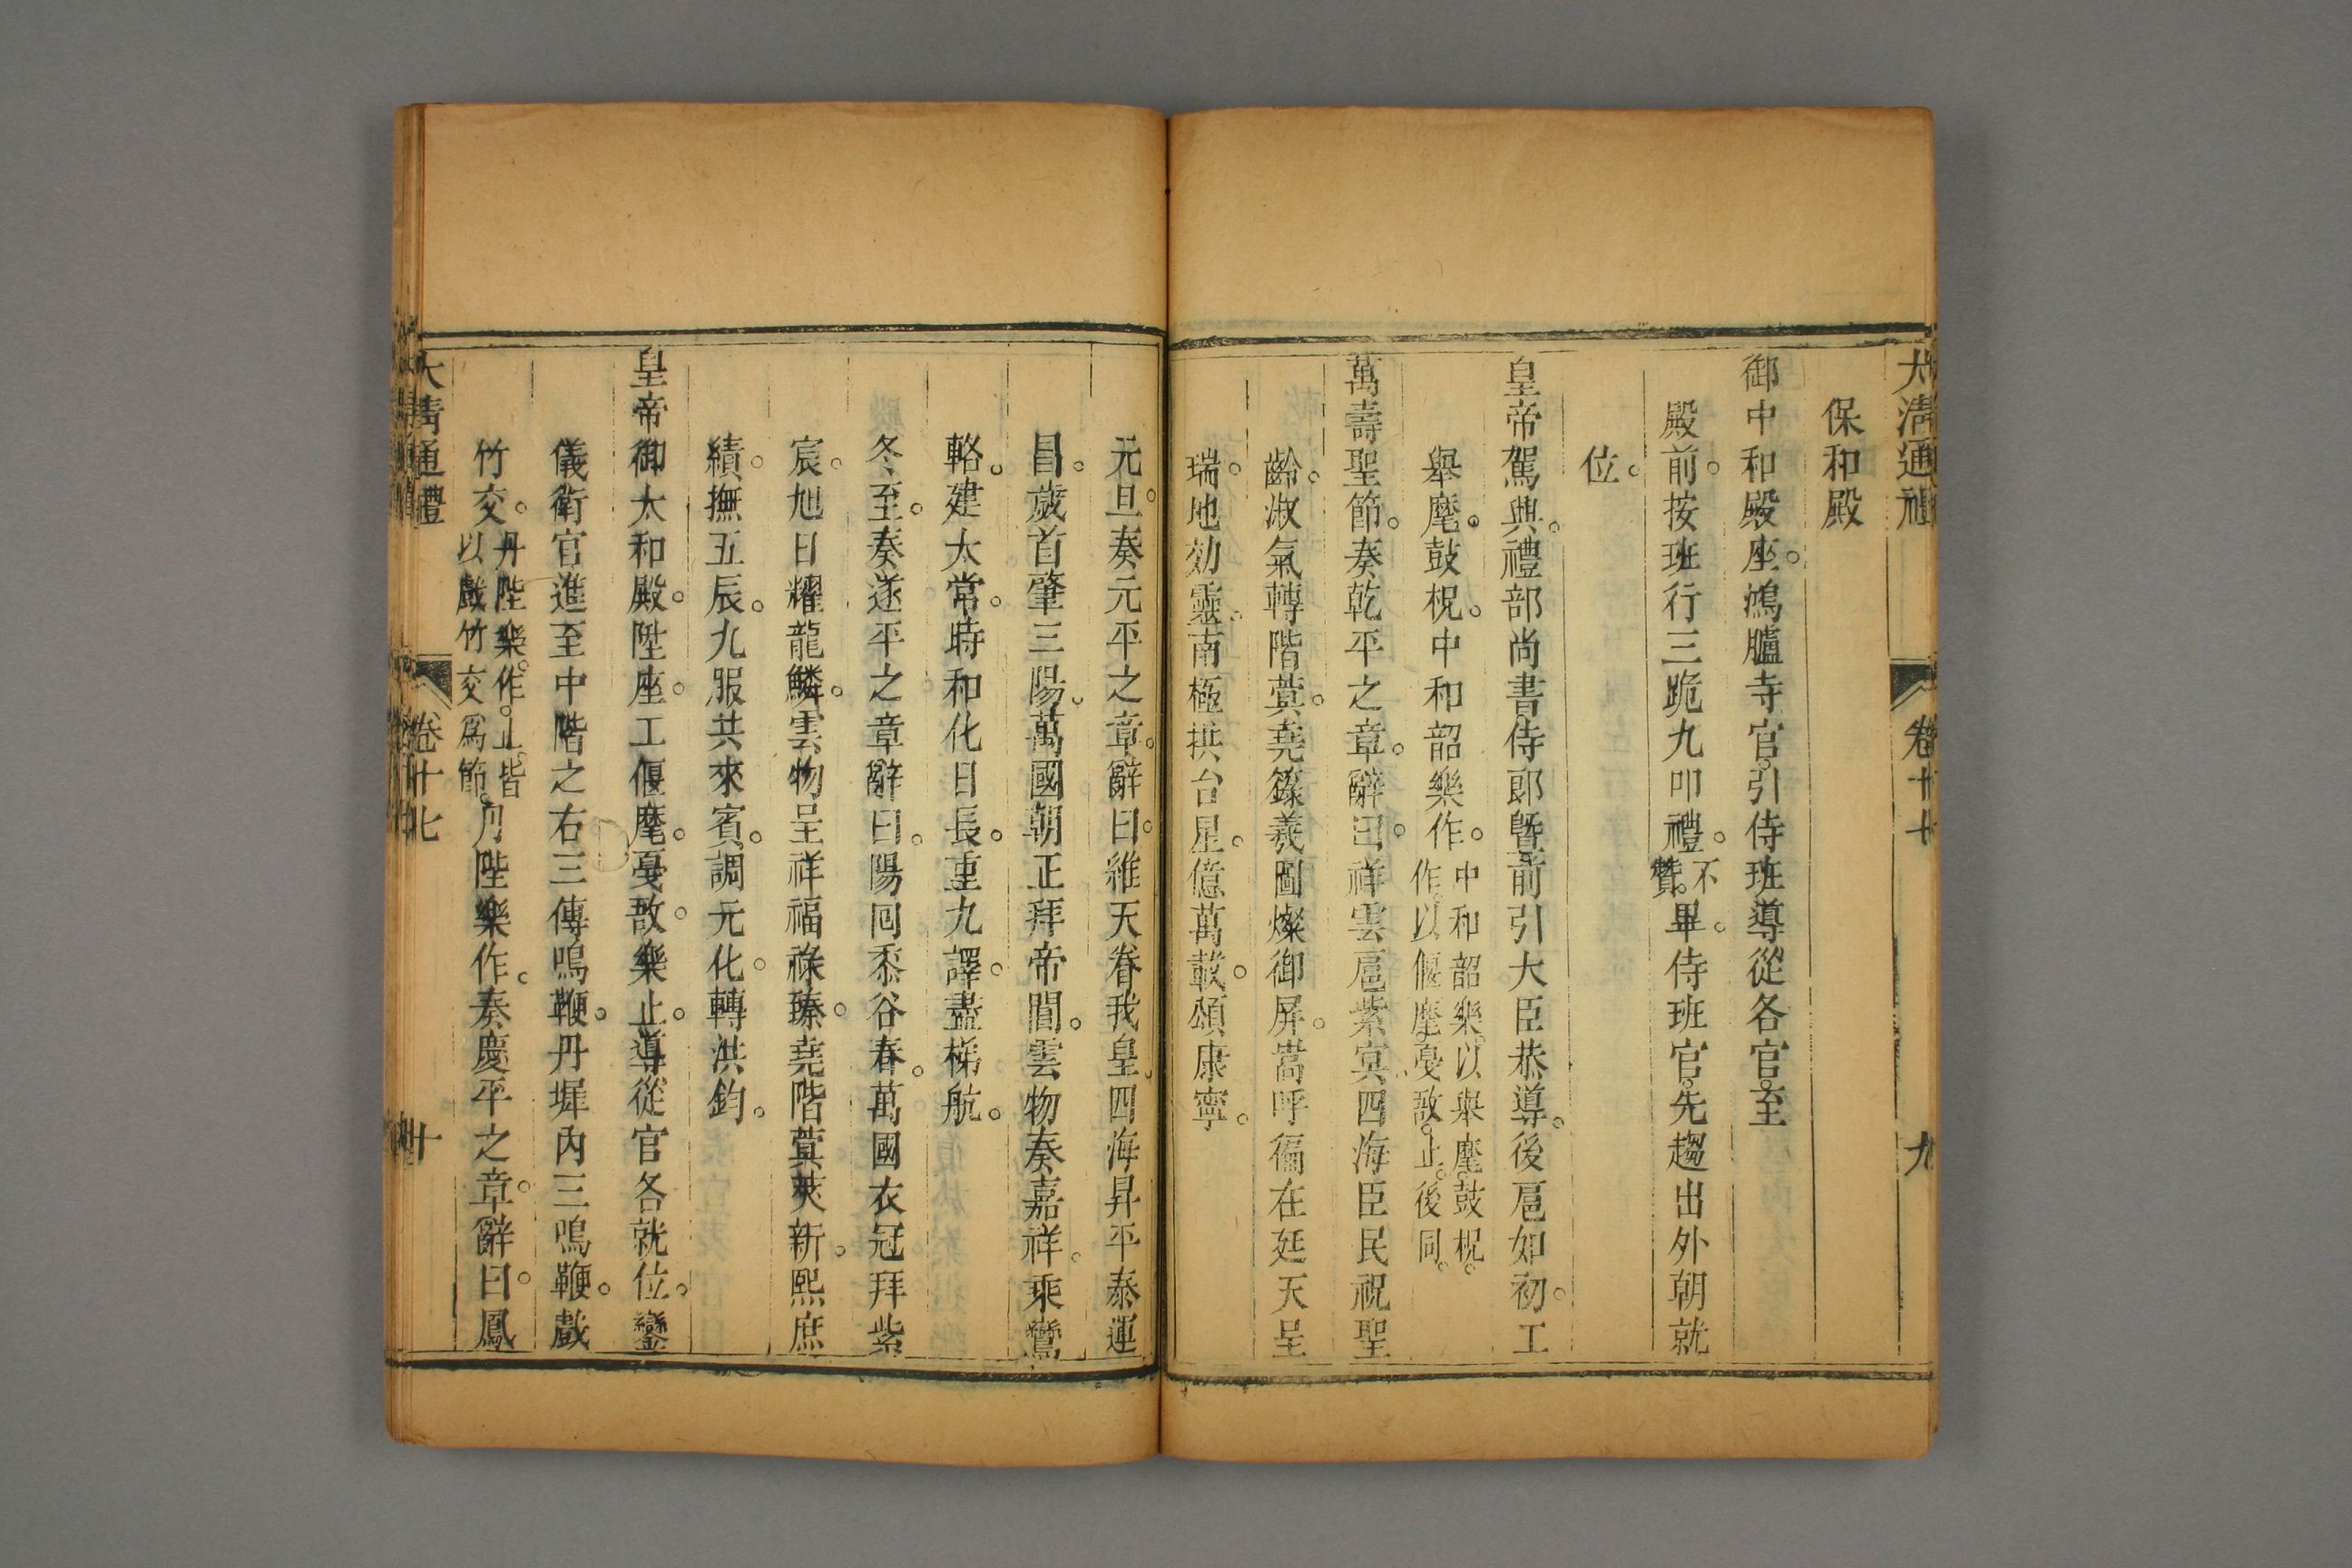 大清通禮 卷十七 九
保和殿
御中和殿座。鴻臚寺官。引侍班導從各官。至
殿前。按班行三跪九叩禮。不贊。畢。侍班官。先趨出外朝就
位。
皇帝駕興。禮部尚書侍郎暨前引大臣恭導。後扈如初。工
舉麾。鼓柷。中和韶樂作。中和韶樂。以舉麾。鼓柷。作。以偃麾。戞敔。止。後同。
萬壽聖節。奏乾平之章。辭曰。祥雲扈紫寅。四海臣民祝聖
齡。淑氣轉階蓂。堯籙羲圖燦御屏。嵩呼徧在廷。天呈
瑞。地効靈。南極拱台星。億萬載。頌康寧。
元旦。奏元平之章。辭曰。維天眷我皇。四海昇平泰運
昌。歲首肇三陽。萬國朝正拜帝閶。雲物奏嘉祥。乘鸞
輅。建太常。時和化日長。重九譯。盡梯航。
冬至。奏遂平之章。辭曰。陽囘黍谷春。萬國衣冠拜紫
宸。旭日耀龍鱗。雲物呈祥福祿臻。堯階蓂莢新。熙庶
績。撫五辰。九服共來賓。調元化。轉洪鈞。
皇帝御太和殿。陞座。工偃麾。戞敔。樂止。導從官各就位。鑾
儀衛官進至中階之右三傳鳴鞭。丹墀內三鳴鞭。戲
竹交。丹陛樂。作。止。皆以戲竹交爲節。丹陛樂作。奏慶平之章。辭曰。鳳
大清通禮 卷十七 十